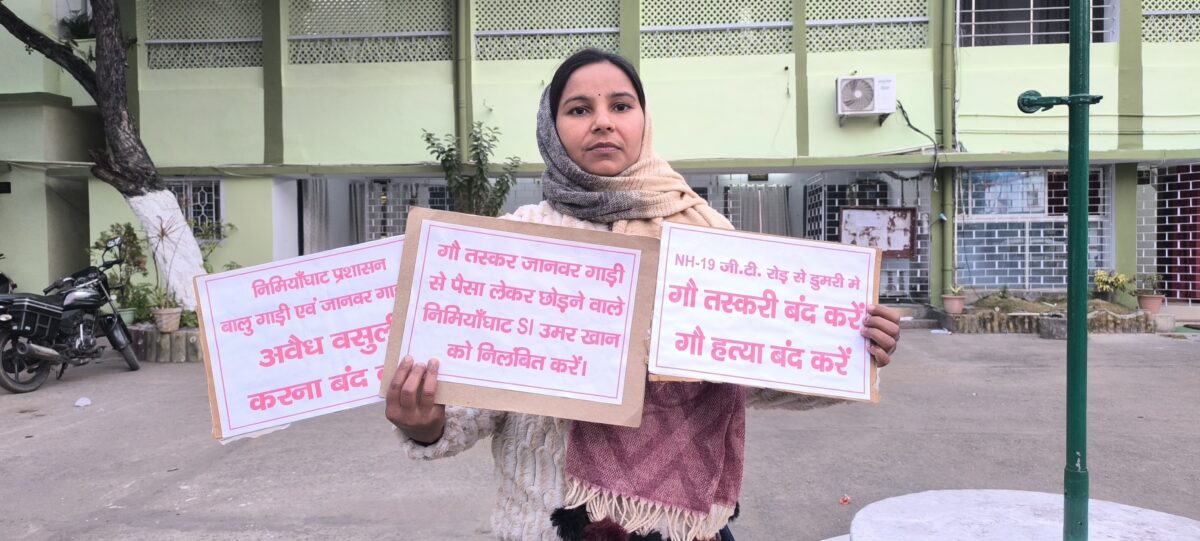 निमियाँघाट प्रशासन
बालु गाड़ी एवं जानवर
अवैध
करना बंद
गौ तस्कर जानवर गाड़ी
से पैसा लेकर छोड़ने वाले
निमियाँघाट SI उमर खान
को निलवित करें।
NH-19 जी.टी. रोड़ से डुमरी मे
गौ तस्करी बंद करें
गौ हत्या बंद करें